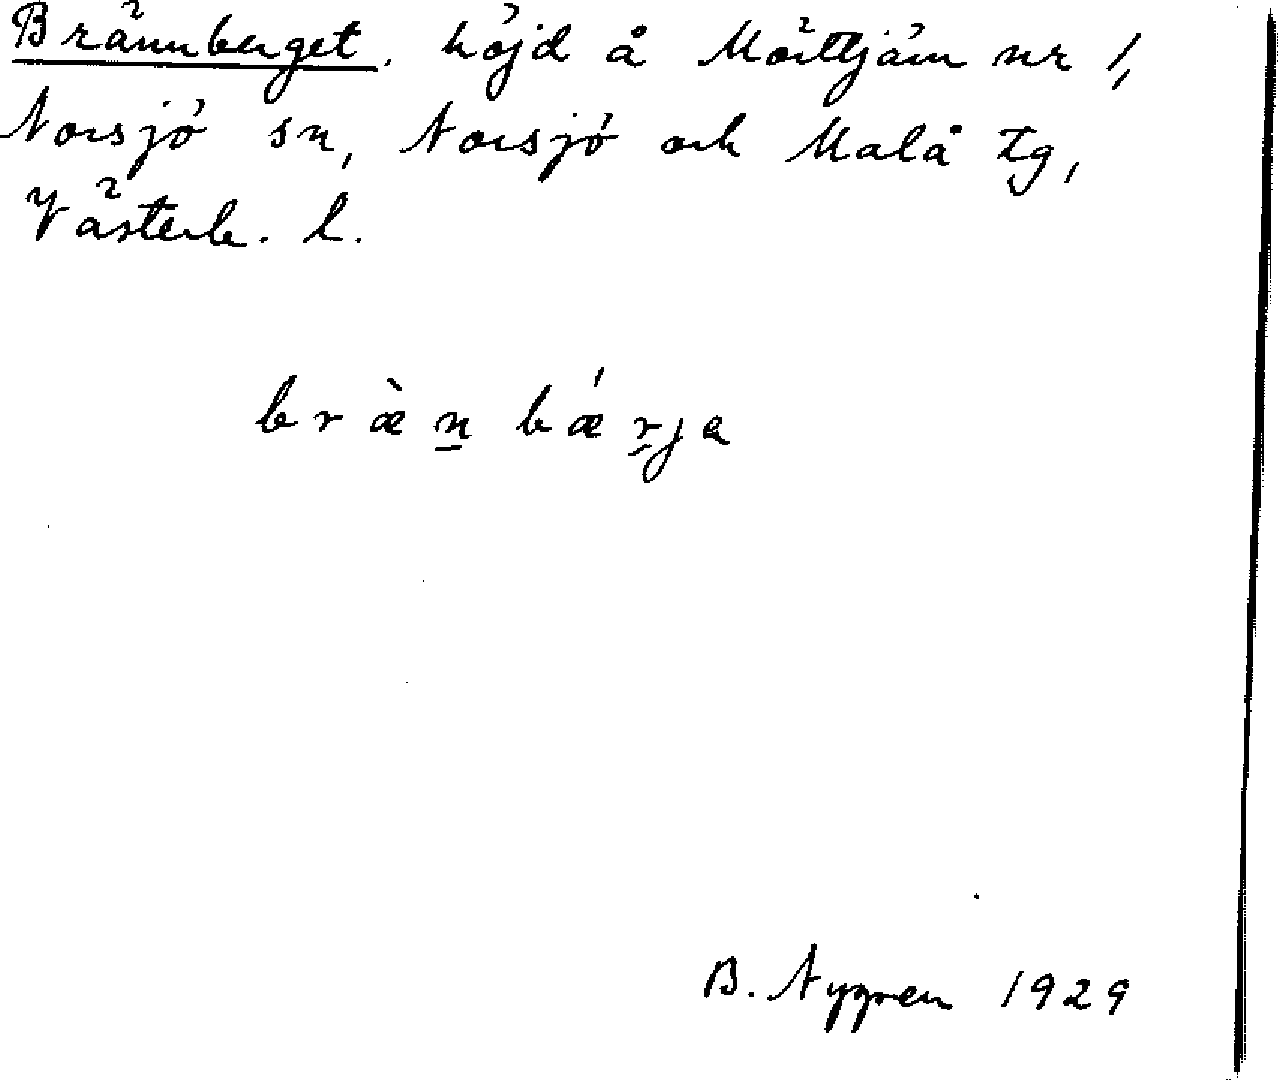 Brännberget. höjd å Mörttjärn nr 1,
Norsjö sn, Norsjö och Malå tg,
Västerb. l.
bræ̀n̲ bǽr̲ja
B. Nygren 1929